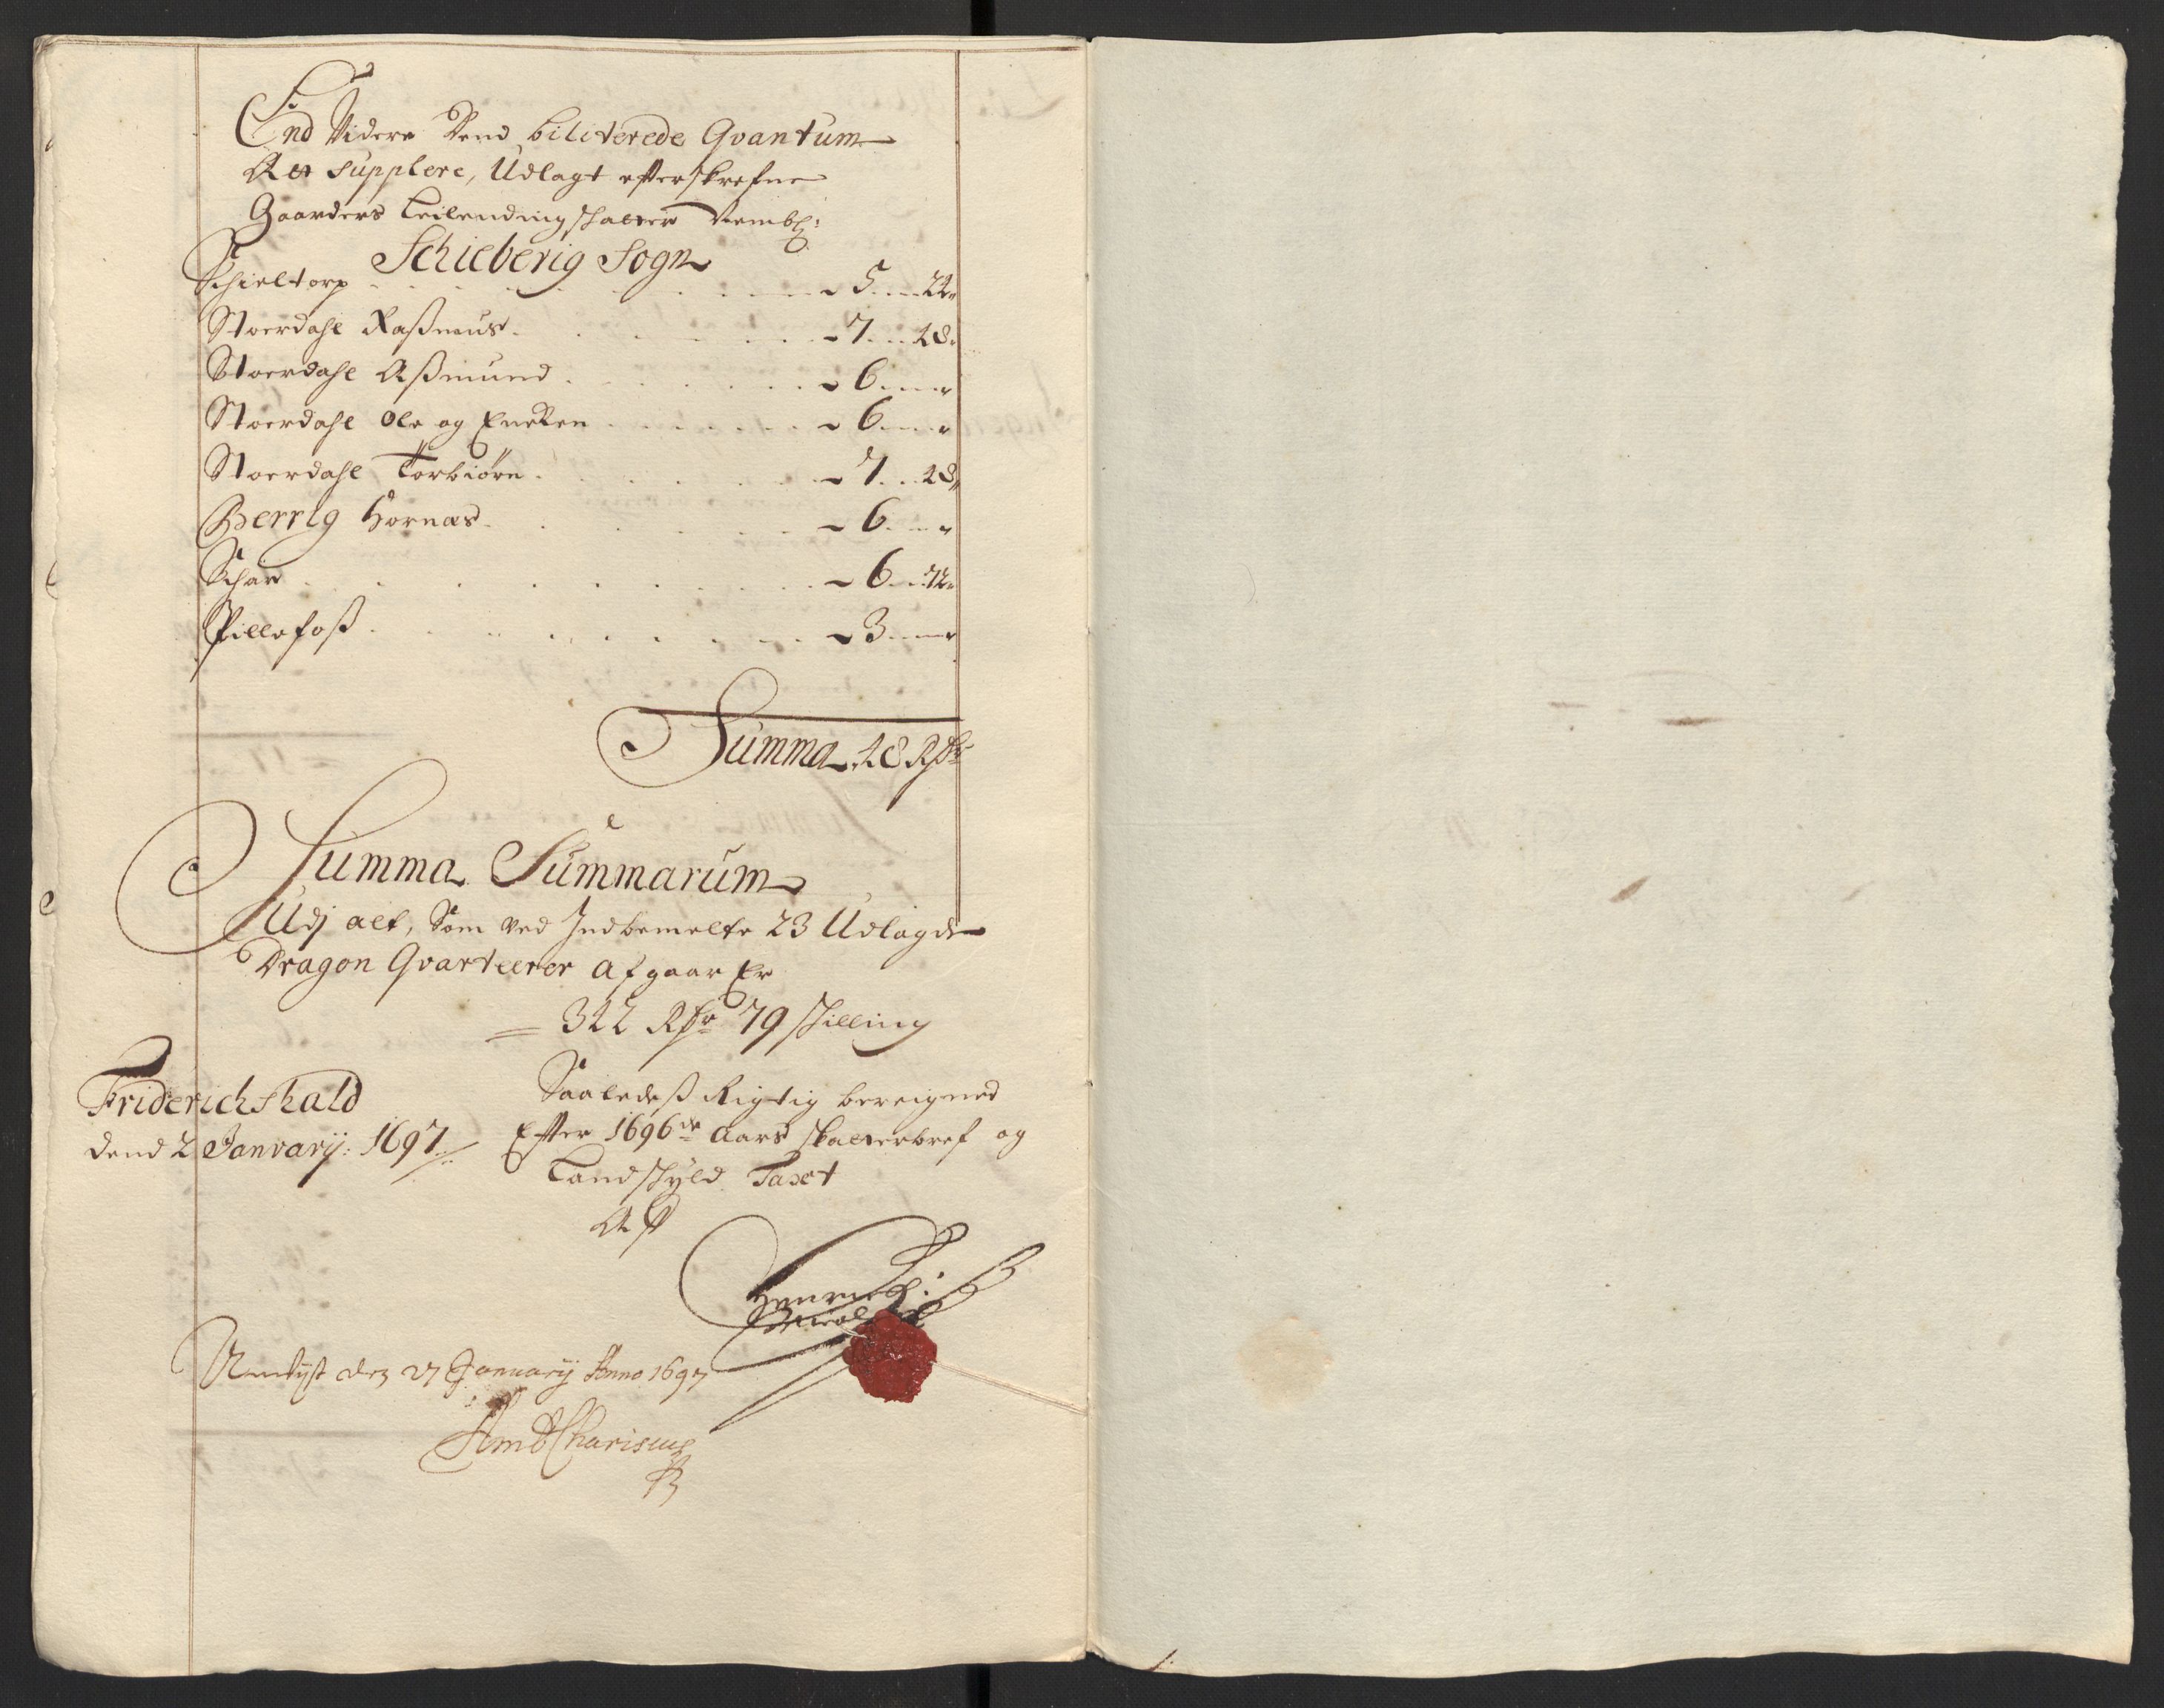 End Videre Dend biliterede Qvantum
At supplere, Udlagt efterskrefne
Gaarders Leilendingschatter Nembl:
Schieberig Sogn
Schieltorp 5 22
Stoerdahl Raßmus 7 28
Stoerdahl Aßmund 6
Stoerdahl Ole og Encken 6
Stoerdahl Torbiörn 7 28
Berrig Hornæs 6
Schar 6 72
Pillefoß 3
Summa 48 Rdr
Summa Summarum
Udj alt, Som ved Indbemelte 23 Udlagde
Dragon Qvarteerer afgaar Er
= 322 Rdr 79 schilling
Friderichshald
dend 2 Janvarij: 1697
Saaledeß Rigtig bereigned
Efter 1696de Aars skatterbref og
Landschyld Taxt
Af
Henrich:
den 27 January Anno 1697
Amb Charisius